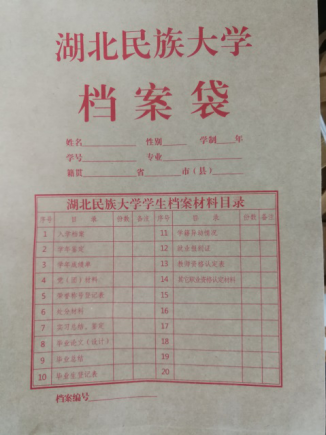 湖北民族大学
档案袋
姓名 性别 学制 年
学号 专业
籍贯 省 市（县）
湖北民族大学学生档案材料目录
序号 目 录 份数 备注 序号 目 录 份数 备注
1 入学档案 11 学籍异动情况
2 学年鉴定 12 就业报到证
3 学年成绩单 13 教师资格认定表
4 党（团）材料 14 其它职业资格认定材料
5 荣誉称号登记表 15
6 处分材料 16
7 实习总结、鉴定 17
8 毕业论文（设计） 18
9 毕业总结 19
10 毕业生登记表 20
档案编号